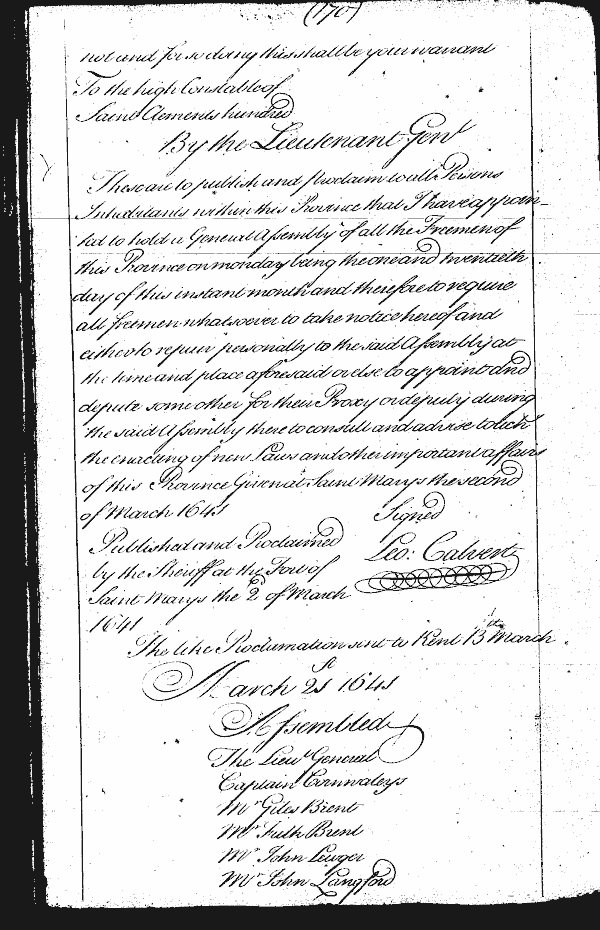 (170)
not and for so doing this shall be your warrant
To the high Constable of
Saint Clements hundred
By the Lieutenant Genl
These are to publish and proclaim to all Persons
Inhabitants within this Province that I have appoin-
ted to hold a General Assembly of all the Freemen of
this Province on monday being the one and twentieth
day of this instant month and therefore to require
all freemen whatsoever to take notice hereof and
either to repair personally to the said Assembly at
the time and place aforesaid or else to appoint and
depute some other for their Proxy or deputy during
the said Assembly there to consult and advise touch
the enacting of new Laws and other important affairs
of this Province Given at Saint Marys the second
of March 1641
Signed
Leo: Calvert
Published and Proclaimed
by the Sheriff at the Fort of
Saint Marys the 2d of March
1641
The like Proclamation sent to Kent 13th March
March 21st 1641
Assembled
The Lieut General
Captain Cornwaleys
Mr Giles Brent
Mr Fulk Brent
Mr John Lewger
Mr John Langford